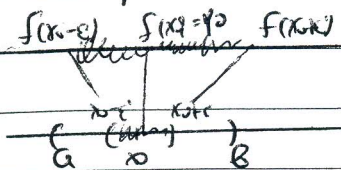 f(x₀-ε) f(x₀)=y₀ f(x₀+ε)
x₀-ε x₀+ε
a x₀ B